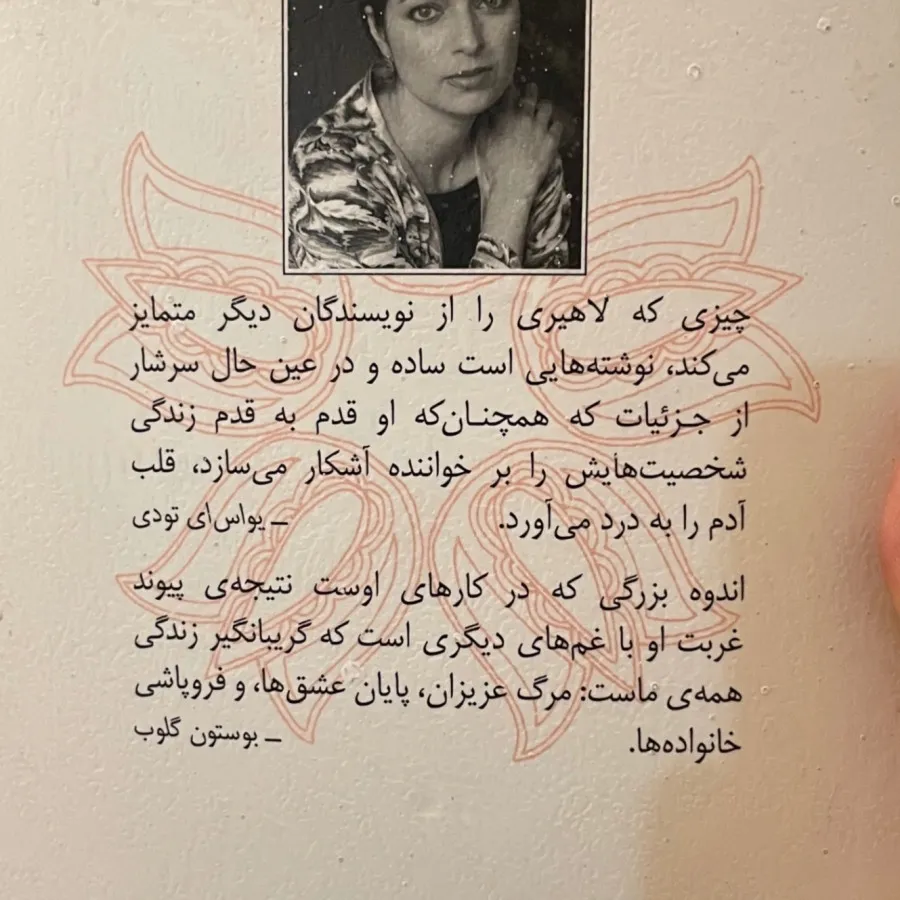 چیزی که لاهیری را از نویسندگان دیگر متمایز
می‌کند، نوشته‌هایی است ساده و در عین حال سرشار
از جزئیات که همچنان‌که او قدم به قدم زندگی
شخصیت‌هایش را بر خواننده آشکار می‌سازد، قلب
آدم را به درد می‌آورد. ــ یواس‌ای تودی
اندوه بزرگی که در کارهای اوست نتیجه‌ی پیوند
غربت او با غم‌های دیگری است که گریبانگیر زندگی
همه‌ی ماست: مرگ عزیزان، پایان عشق‌ها، و فروپاشی
خانواده‌ها. ــ بوستون گلوب